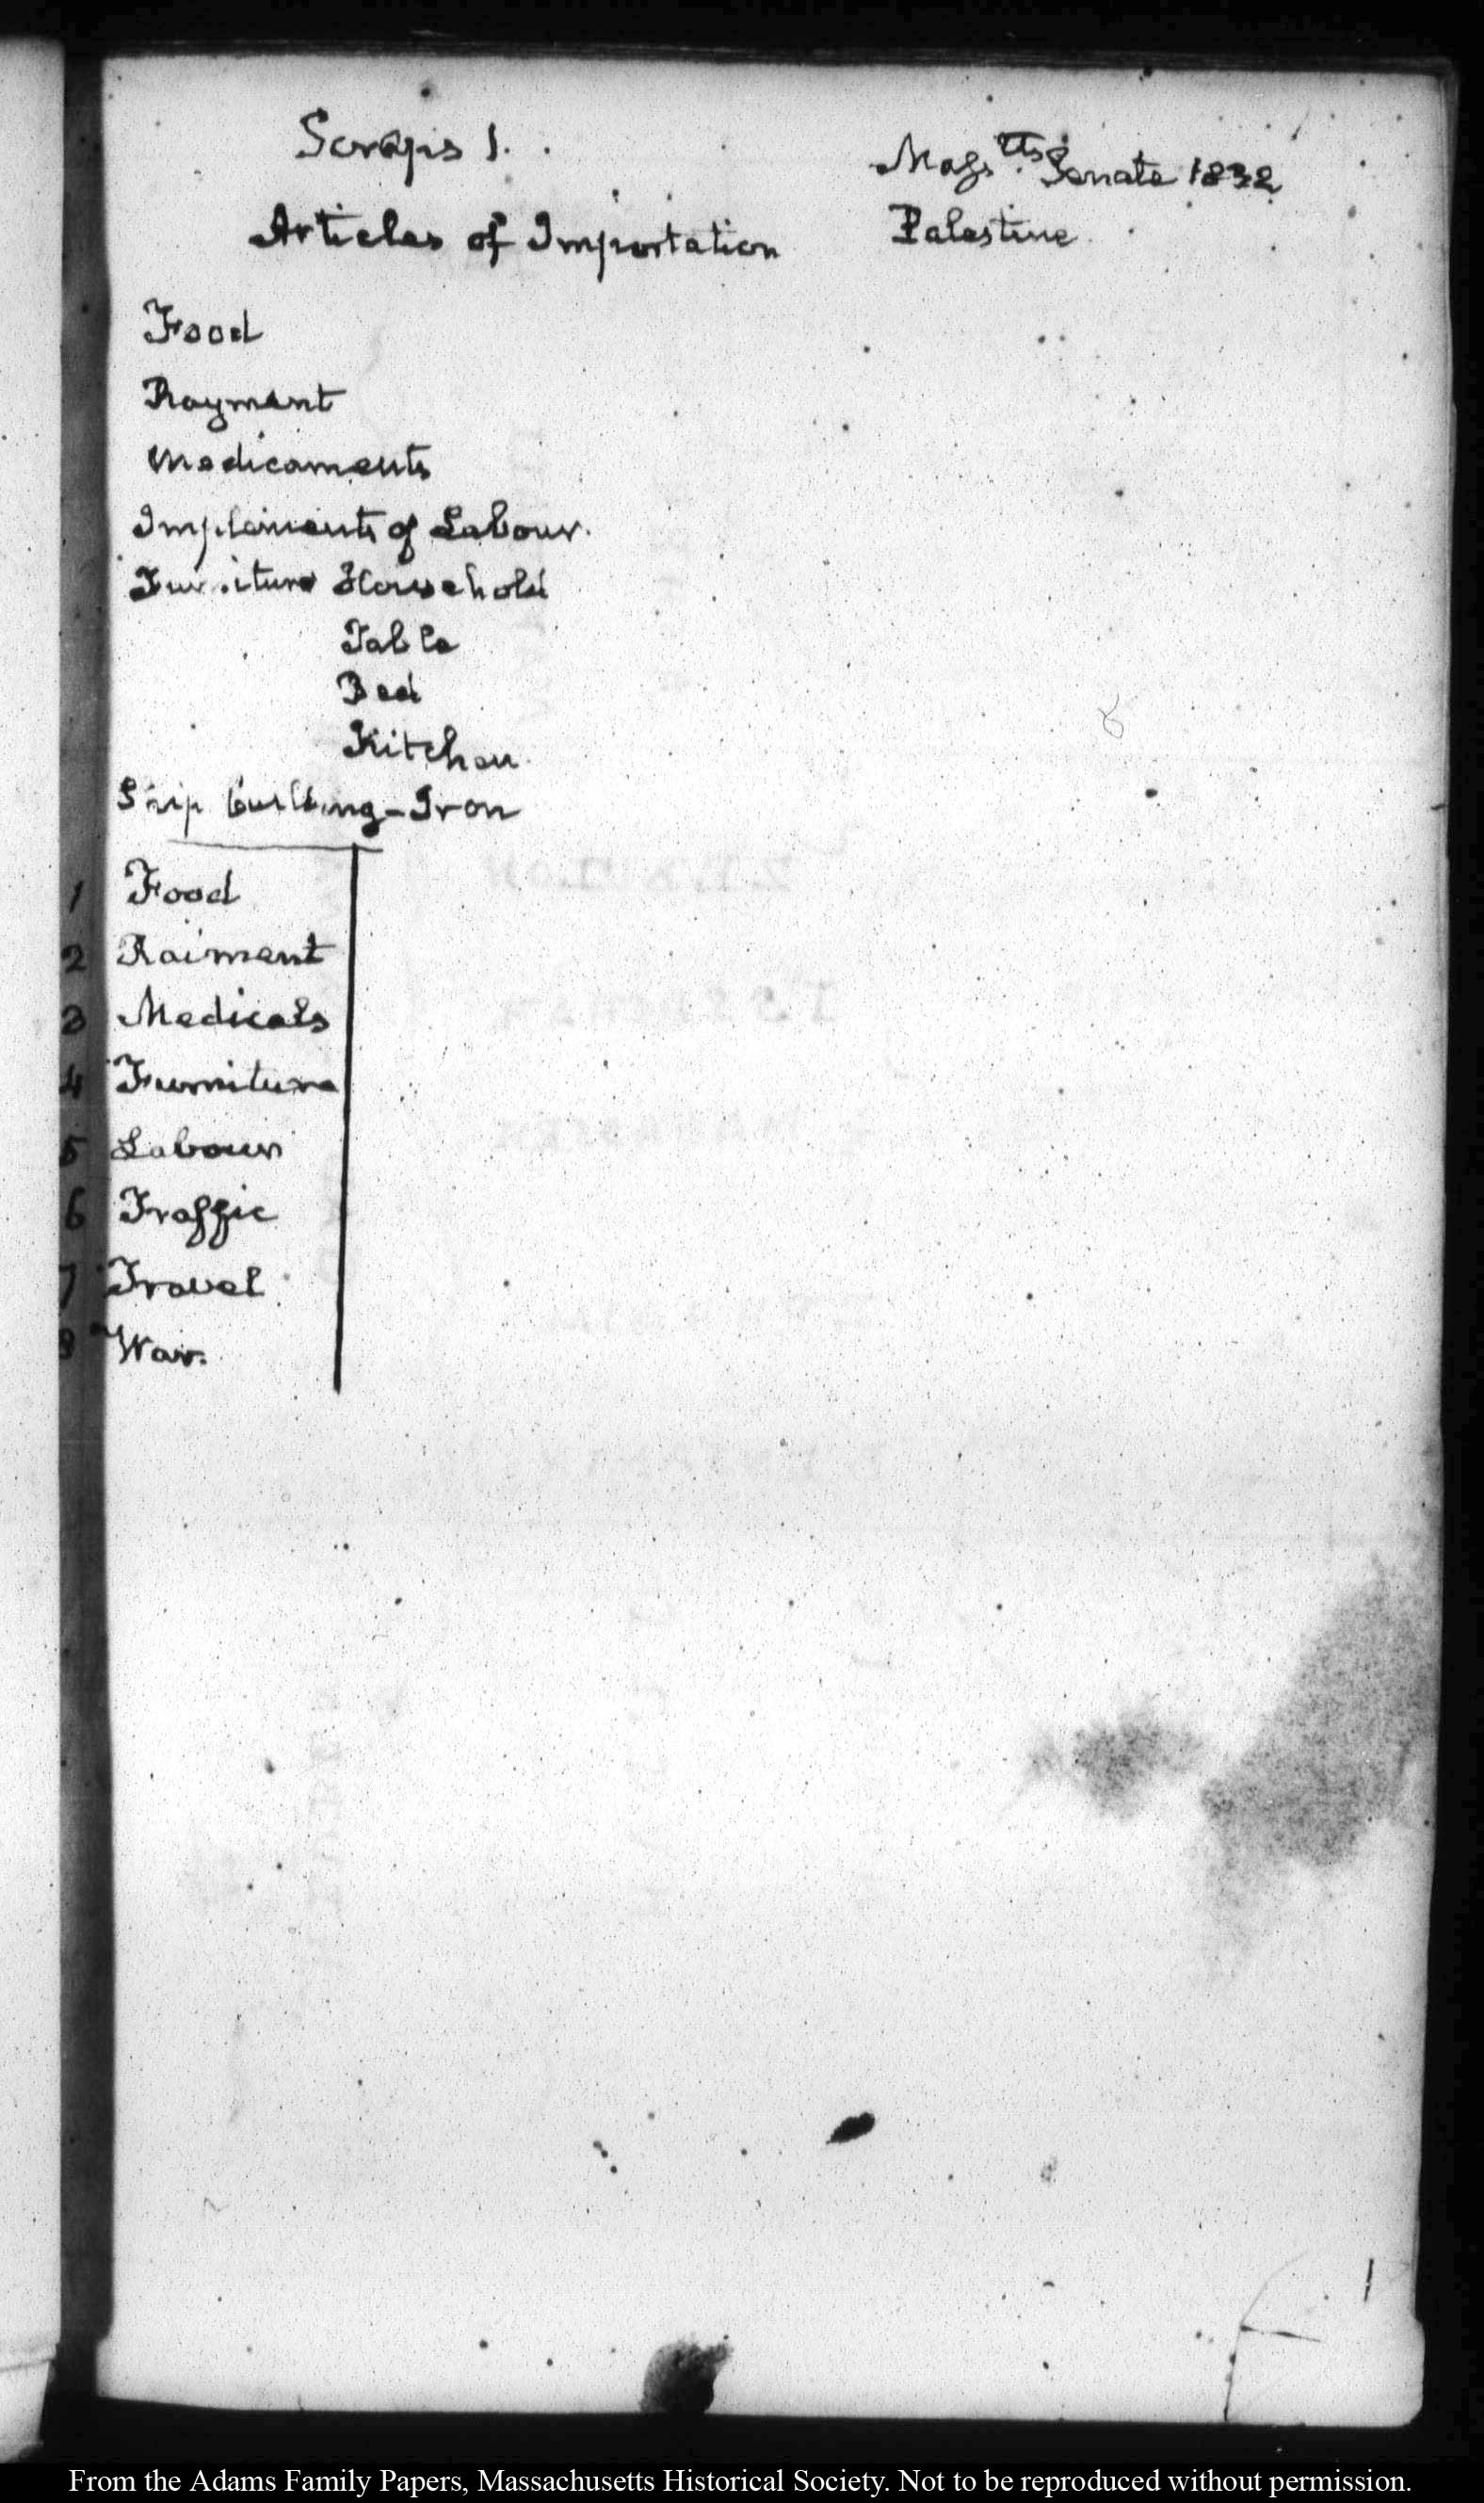 Scraps 1.
Mass.tts Senate 1832
Articles of Importation
Palestine
Food
Rayment
Medicaments
Implements of Labour.
Furniture Household
Table
Bed
Kitchen
Ship building - Iron
1 Food
2 Raiment
3 Medicals
4 Furniture
5 Labour
6 Traffic
7 Travel
8 War.
From the Adams Family Papers, Massachusetts Historical Society. Not to be reproduced without permission.